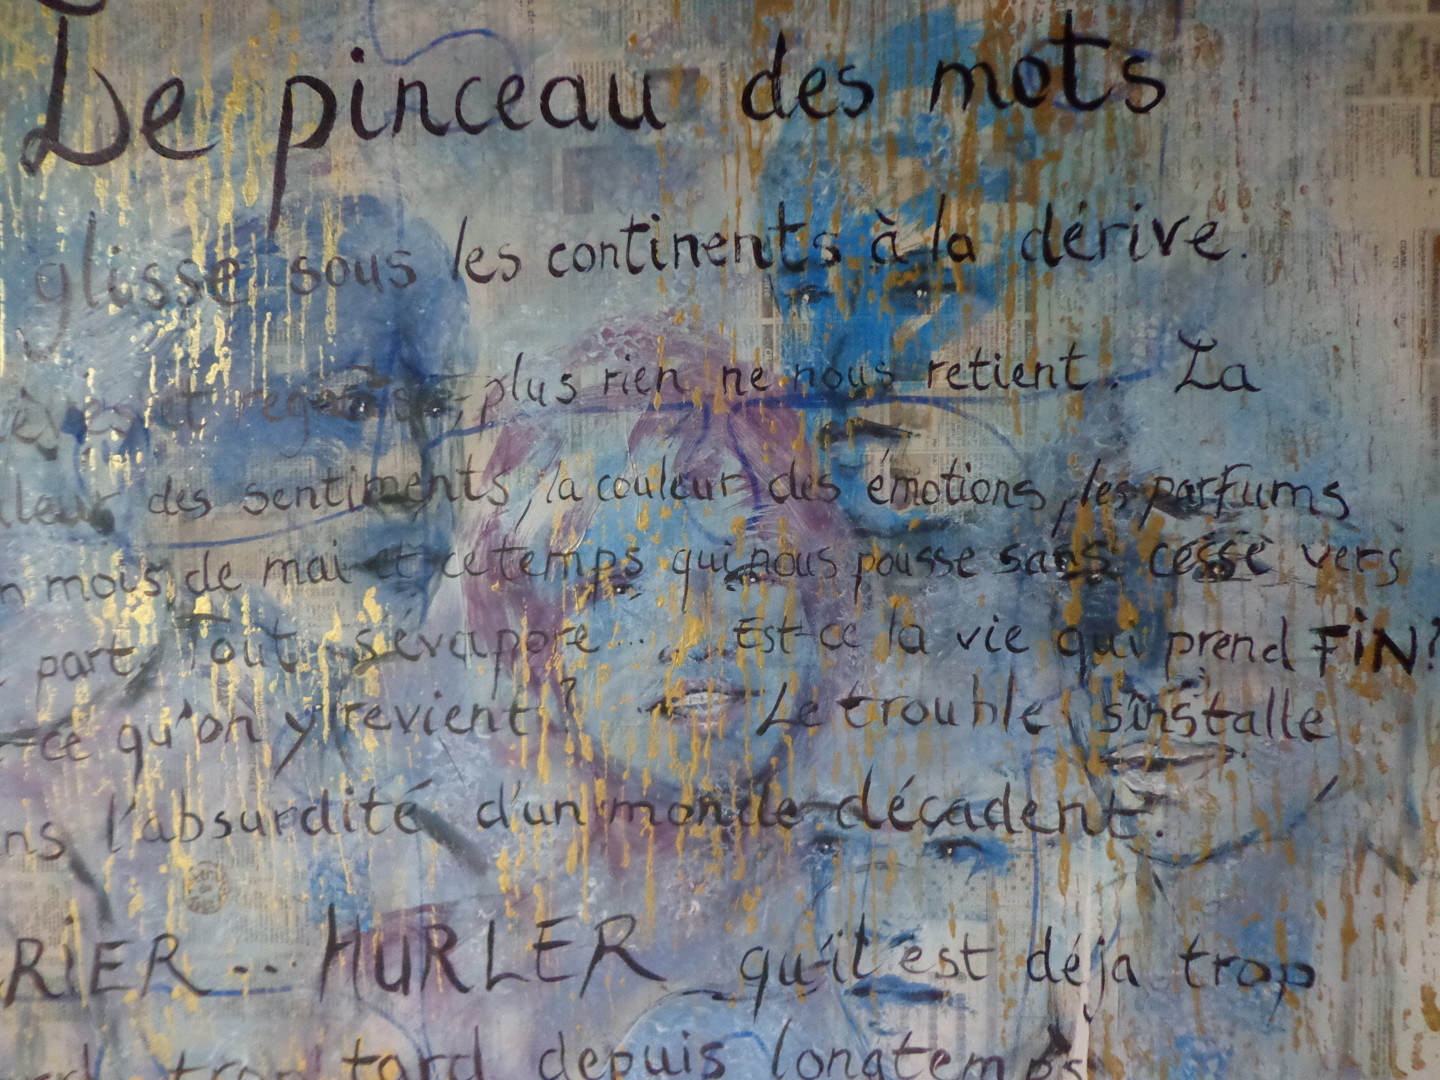 Le pinceau des mots
glisse sous les continents à la dérive.
rêves et regards, plus rien ne nous retient. La
des sentiments, la couleur des émotions, les parfums
mois de mai et ce temps qui nous pousse sans cesse vers
part. Tout s'évapore... Est-ce la vie qui prend FiN?
-ce qu'on y revient ? Le trouble s'installe
l'absurdité d'un monde décadent.
RiER... HURLER qu'il est déja trop
trop tard depuis longtemps